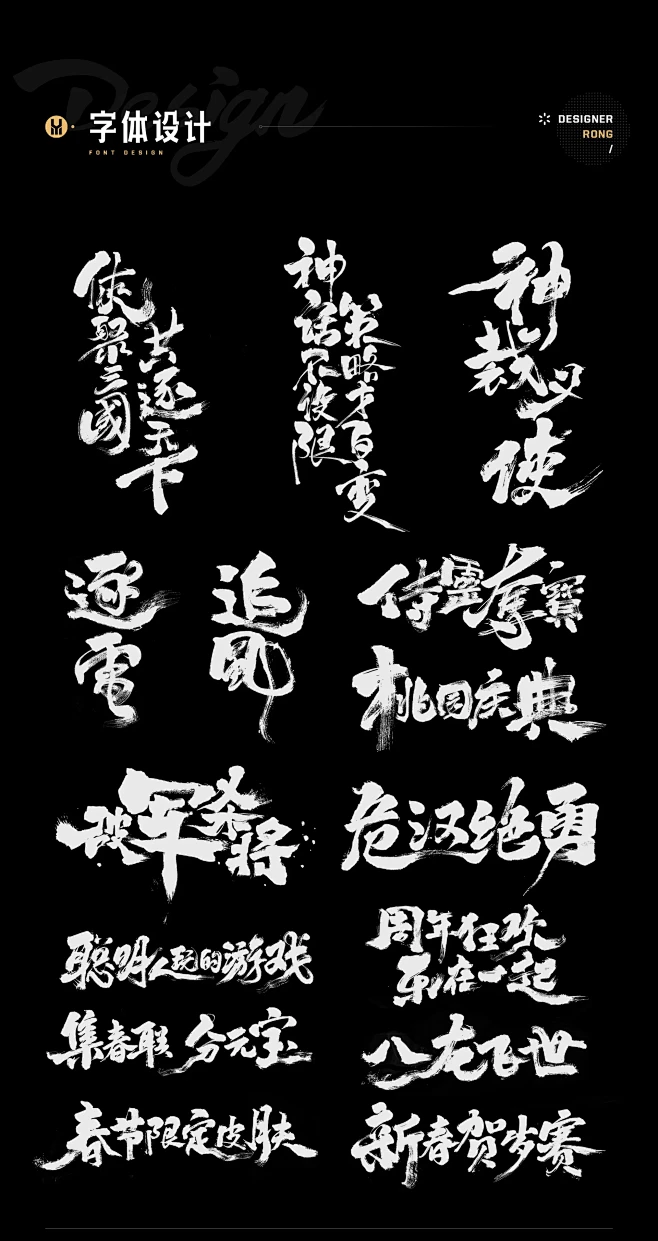 Design
字体设计
FONT DESIGN
DESIGNER
RONG
/
侠聚三國
共逐天下
神话不设限
策略才百变
神裁又使
逐電
追風
侍靈奪寶
桃园庆典
破军杀将
危汉绝勇
聪明人玩的游戏
周年狂欢
乐在一起
集春联 分元宝
八龙飞世
春节限定皮肤
新春贺岁赛